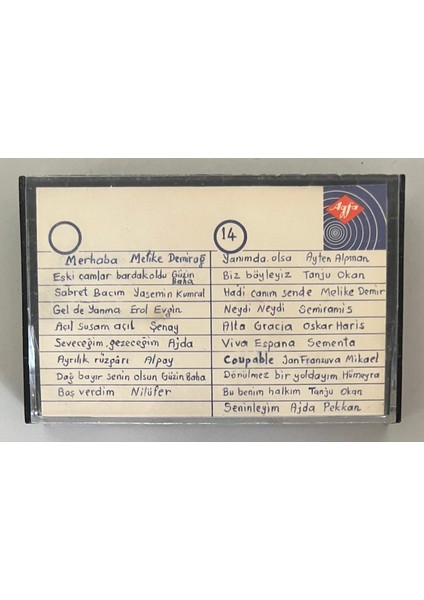 Agfa
14
Merhaba Melike Demirağ
Eski camlar bardakoldu Güzin Baha
Sabret Bacım Yasemin Kumral
Gel de Yanma Erol Evgin
Açıl Susam açıl Şenay
Seveceğim, gezeceğim Ajda
Ayrılık rüzgarı Alpay
Dağ bayır senin olsun Güzin Baha
Boş verdim Nilüfer
Yanımda olsa Ayten Alpman
Biz böyleyiz Tanju Okan
Hadi canım sende Melike Demir
Neydi Neydi Semiramis
Alta Gracia Oskar Haris
Viva Espana Sementa
Coupable Jan Fransuva Mikael
Dönülmez bir yoldayım Hümeyra
Bu benim halkım Tanju Okan
Seninleyim Ajda Pekkan